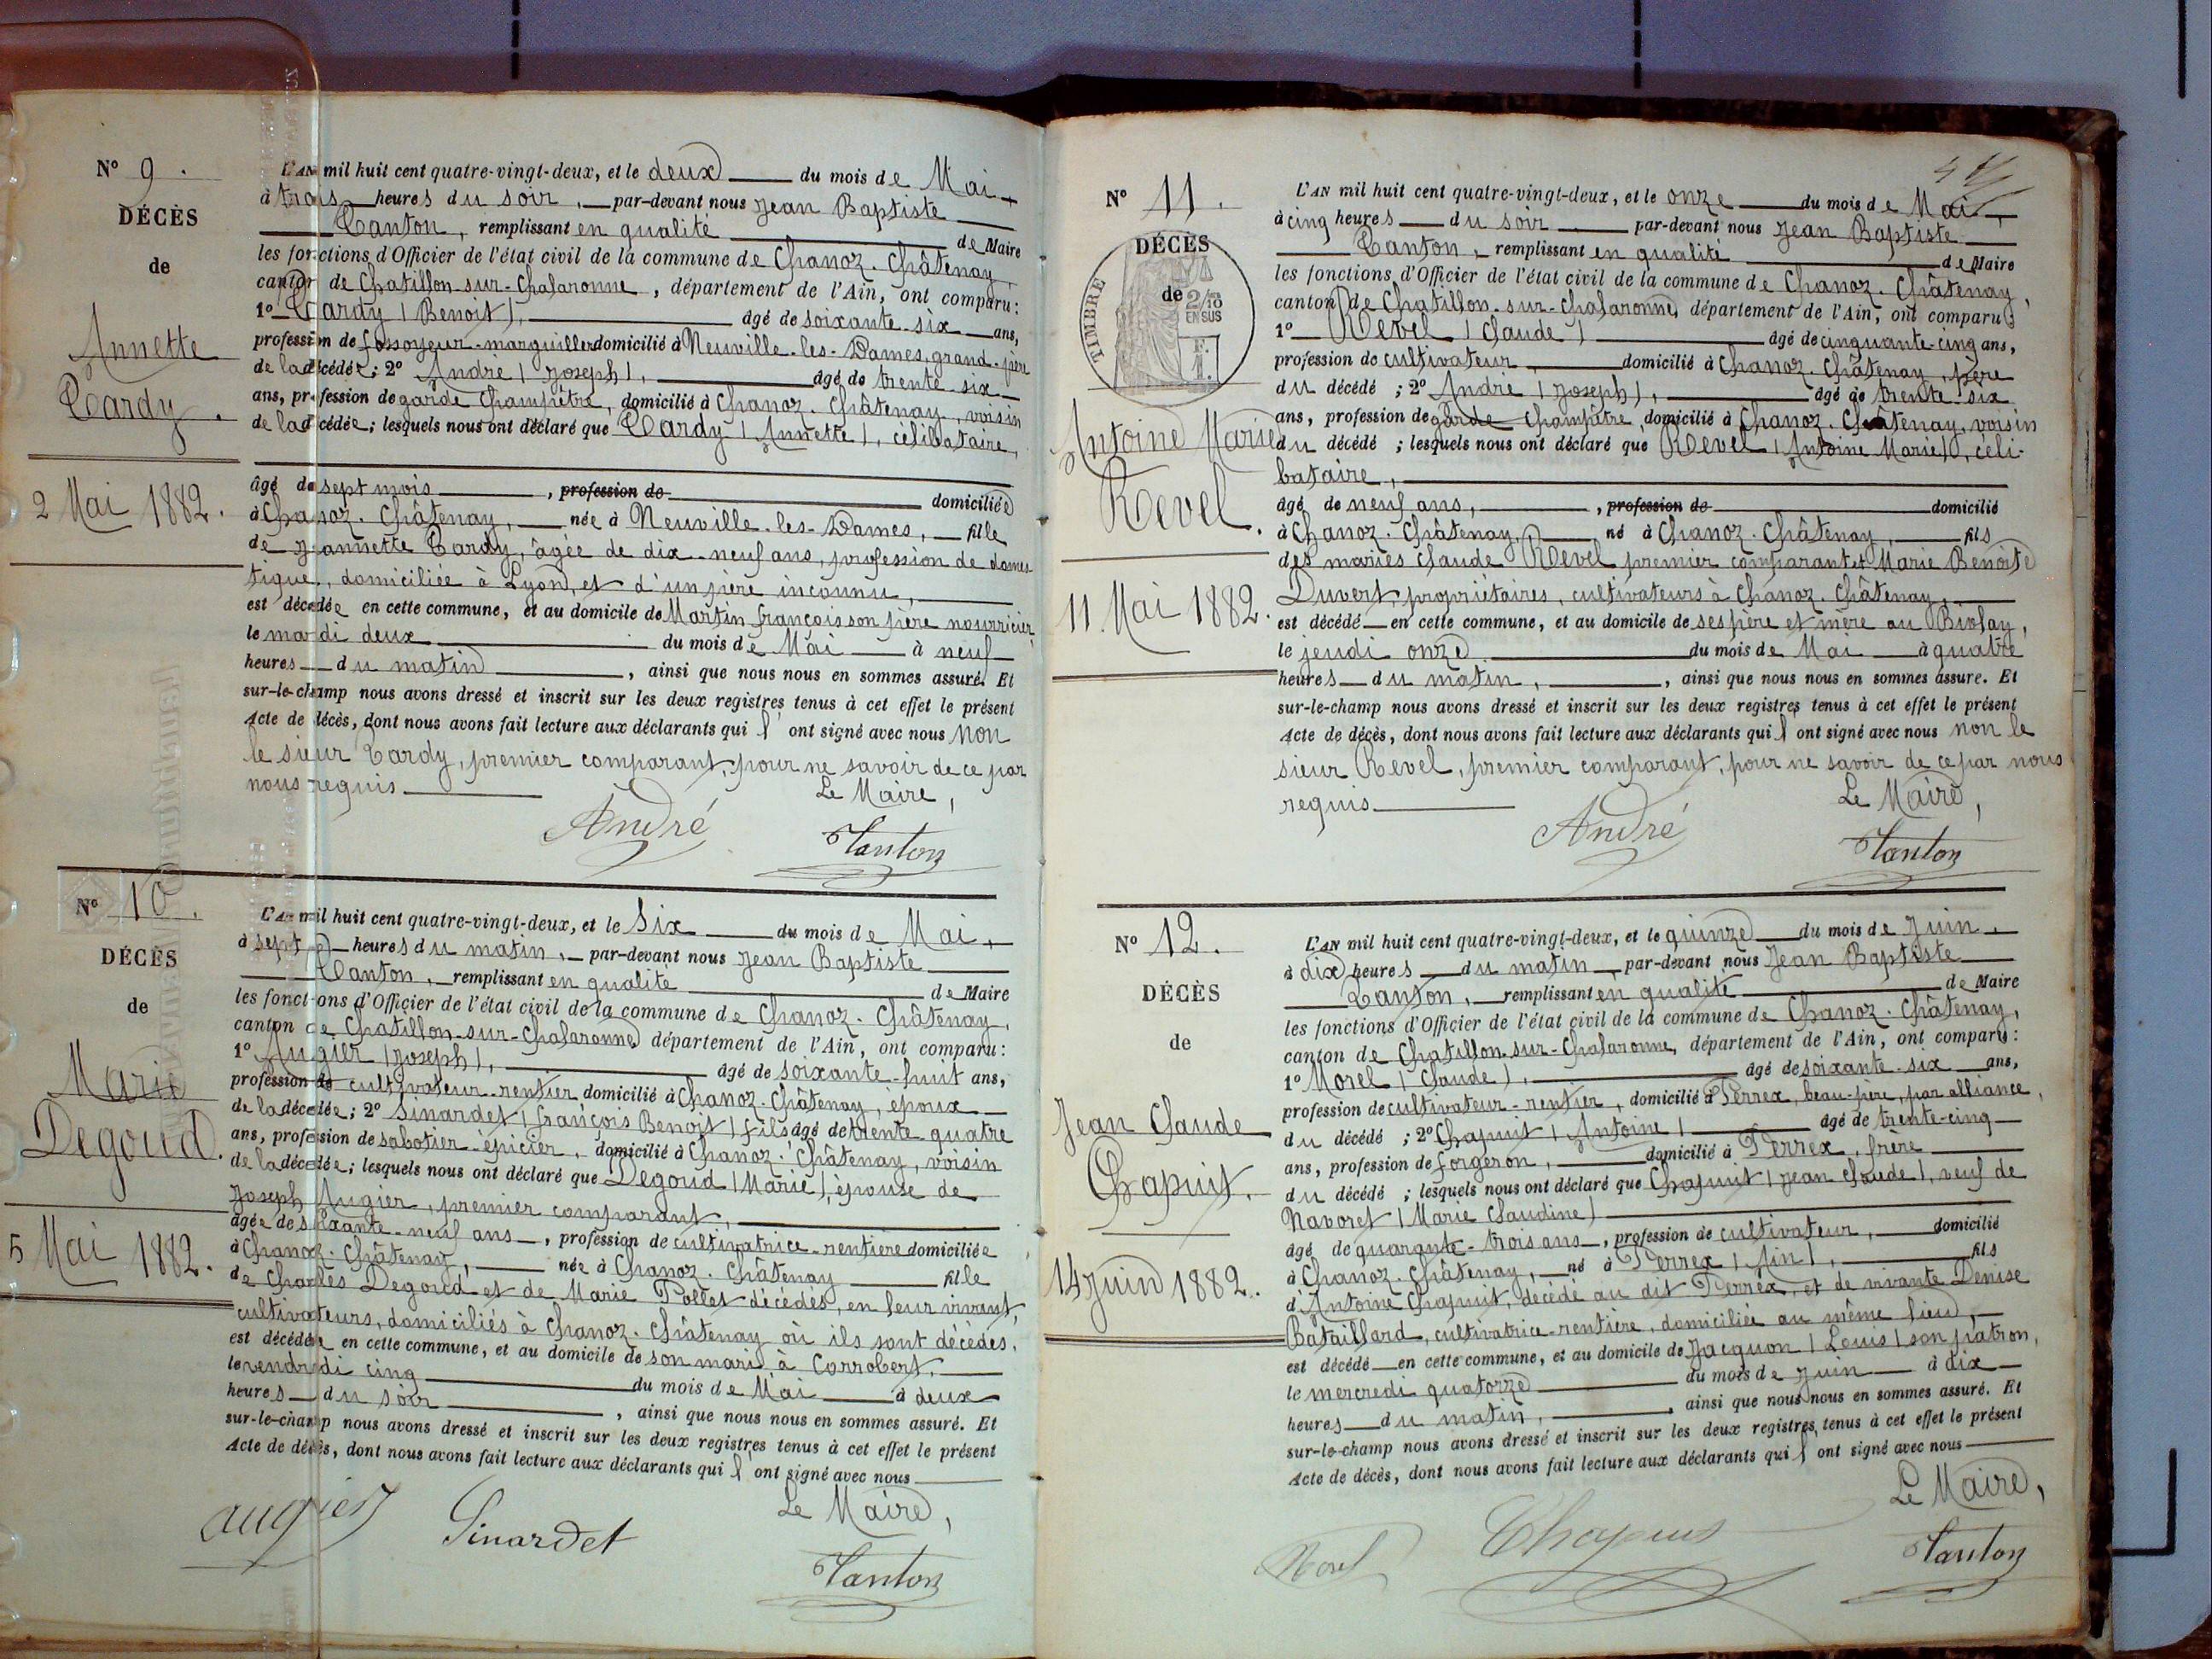 N° 9.
DÉCÈS
de
Annette
Tardy.
2 Mai 1882.
L'AN mil huit cent quatre-vingt-deux, et le deux du mois de Mai,
à trois heures du soir, par-devant nous Jean Baptiste
Tanton, remplissant en qualité de Maire
les fonctions d'Officier de l'état civil de la commune de Chanoz-Châtenay,
canton de Chatillon-sur-Chalaronne, département de l'Ain, ont comparu:
1° Tardy (Benoit), âgé de soixante-six ans,
profession de fossoyeur-marguiller domicilié à Neuville-les-Dames, grand-père
de la décédée; 2° André (Joseph), âgé de trente-six
ans, profession de garde champêtre, domicilié à Chanoz-Châtenay, voisin
de la décédée; lesquels nous ont déclaré que Tardy (Annette), célibataire,
âgé de sept mois, profession de domiciliée
à Chanoz-Châtenay, née à Neuville-les-Dames, fille
de Jeannette Tardy, âgée de dix-neuf ans, profession de domes-
tique, domiciliée à Lyon, et d'un père inconnu,
est décédée en cette commune, et au domicile de Martin François son père nourricier,
le mardi deux du mois de Mai à neuf
heures du matin, ainsi que nous nous en sommes assuré. Et
sur-le-champ nous avons dressé et inscrit sur les deux registres tenus à cet effet le présent
Acte de décès, dont nous avons fait lecture aux déclarants qui l'ont signé avec nous non
le sieur Tardy, premier comparant, pour ne savoir de ce par
nous requis
Le Maire,
André
Tanton
N° 10.
DÉCÈS
de
Marie
Degoud.
5 Mai 1882.
L'AN mil huit cent quatre-vingt-deux, et le Six du mois de Mai,
à sept heures du matin, par-devant nous Jean Baptiste
Tanton, remplissant en qualité de Maire
les fonctions d'Officier de l'état civil de la commune de Chanoz-Châtenay,
canton de Chatillon-sur-Chalaronne département de l'Ain, ont comparu:
1° Augier (Joseph), âgé de soixante-huit ans,
profession de cultivateur-rentier domicilié à Chanoz-Châtenay, époux
de la décédée; 2° Sinardet (François Benoit) fils âgé de trente-quatre
ans, profession de sabotier-épicier, domicilié à Chanoz-Châtenay, voisin
de la décédée; lesquels nous ont déclaré que Degoud (Marie), épouse de
Joseph Augier, premier comparant,
âgée de soixante-neuf ans, profession de cultivatrice-rentière domiciliée
à Chanoz-Châtenay, née à Chanoz-Châtenay fille
de Charles Degoud et de Marie Pollet décédés, en leur vivant,
cultivateurs, domiciliés à Chanoz-Châtenay où ils sont décédés,
est décédée en cette commune, et au domicile de son mari à Corrobert,
le vendredi cinq du mois de Mai à deux
heures du soir, ainsi que nous nous en sommes assuré. Et
sur-le-champ nous avons dressé et inscrit sur les deux registres tenus à cet effet le présent
Acte de décès, dont nous avons fait lecture aux déclarants qui l'ont signé avec nous
Le Maire,
augier Sinardet
Tanton
N° 11.
DÉCÈS
de
TIMBRE
2/10
EN SUS
Antoine Marie
Revel.
11 Mai 1882.
L'AN mil huit cent quatre-vingt-deux, et le onze du mois de Mai,
à cinq heures du soir par-devant nous Jean Baptiste
Tanton, remplissant en qualité de Maire
les fonctions d'Officier de l'état civil de la commune de Chanoz-Châtenay,
canton de Chatillon-sur-Chalaronne, département de l'Ain, ont comparu:
1° Revel (Claude) âgé de cinquante-cinq ans,
profession de cultivateur, domicilié à Chanoz-Châtenay, père
du décédé; 2° André (Joseph), âgé de trente-six
ans, profession de garde champêtre, domicilié à Chanoz-Châtenay, voisin
du décédé; lesquels nous ont déclaré que Revel (Antoine Marie), céli-
bataire,
âgé de neuf ans, profession de domicilié
à Chanoz-Châtenay, né à Chanoz-Châtenay, fils
des mariés Claude Revel premier comparant et Marie Benoite
Duvert, propriétaires, cultivateurs à Chanoz-Châtenay,
est décédé en cette commune, et au domicile de ses père et mère au Biolay,
le jeudi onze du mois de Mai à quatre
heures du matin, ainsi que nous nous en sommes assuré. Et
sur-le-champ nous avons dressé et inscrit sur les deux registres tenus à cet effet le présent
Acte de décès, dont nous avons fait lecture aux déclarants qui l'ont signé avec nous non le
sieur Revel, premier comparant, pour ne savoir de ce par nous
requis
Le Maire,
André
Tanton
N° 12.
DÉCÈS
de
Jean Claude
Chapuit.
14 juin 1882.
L'AN mil huit cent quatre-vingt-deux, et le quinze du mois de Juin,
à dix heures du matin par-devant nous Jean Baptiste
Tanton, remplissant en qualité de Maire
les fonctions d'Officier de l'état civil de la commune de Chanoz-Châtenay,
canton de Chatillon-sur-Chalaronne, département de l'Ain, ont comparu:
1° Morel (Claude), âgé de soixante-six ans,
profession de cultivateur-rentier, domicilié à Perrex, beau-père, par alliance,
du décédé; 2° Chapuit (Antoine) âgé de trente-cinq
ans, profession de forgeron, domicilié à Perrex, frère
du décédé; lesquels nous ont déclaré que Chapuit (Jean Claude), veuf de
Navoret (Marie Claudine)
âgé de quarante-trois ans, profession de cultivateur, domicilié
à Chanoz-Châtenay, né à Perrex (Ain), fils
d'Antoine Chapuit, décédé au dit Perrex, et de vivante Denise
Bataillard, cultivatrice-rentière, domiciliée au même lieu,
est décédé en cette commune, et au domicile de Jacquon (Louis) son patron,
le mercredi quatorze du mois de Juin à dix
heures du matin, ainsi que nous nous en sommes assuré. Et
sur-le-champ nous avons dressé et inscrit sur les deux registres tenus à cet effet le présent
Acte de décès, dont nous avons fait lecture aux déclarants qui l'ont signé avec nous
Le Maire,
Morel Chapuis
Tanton